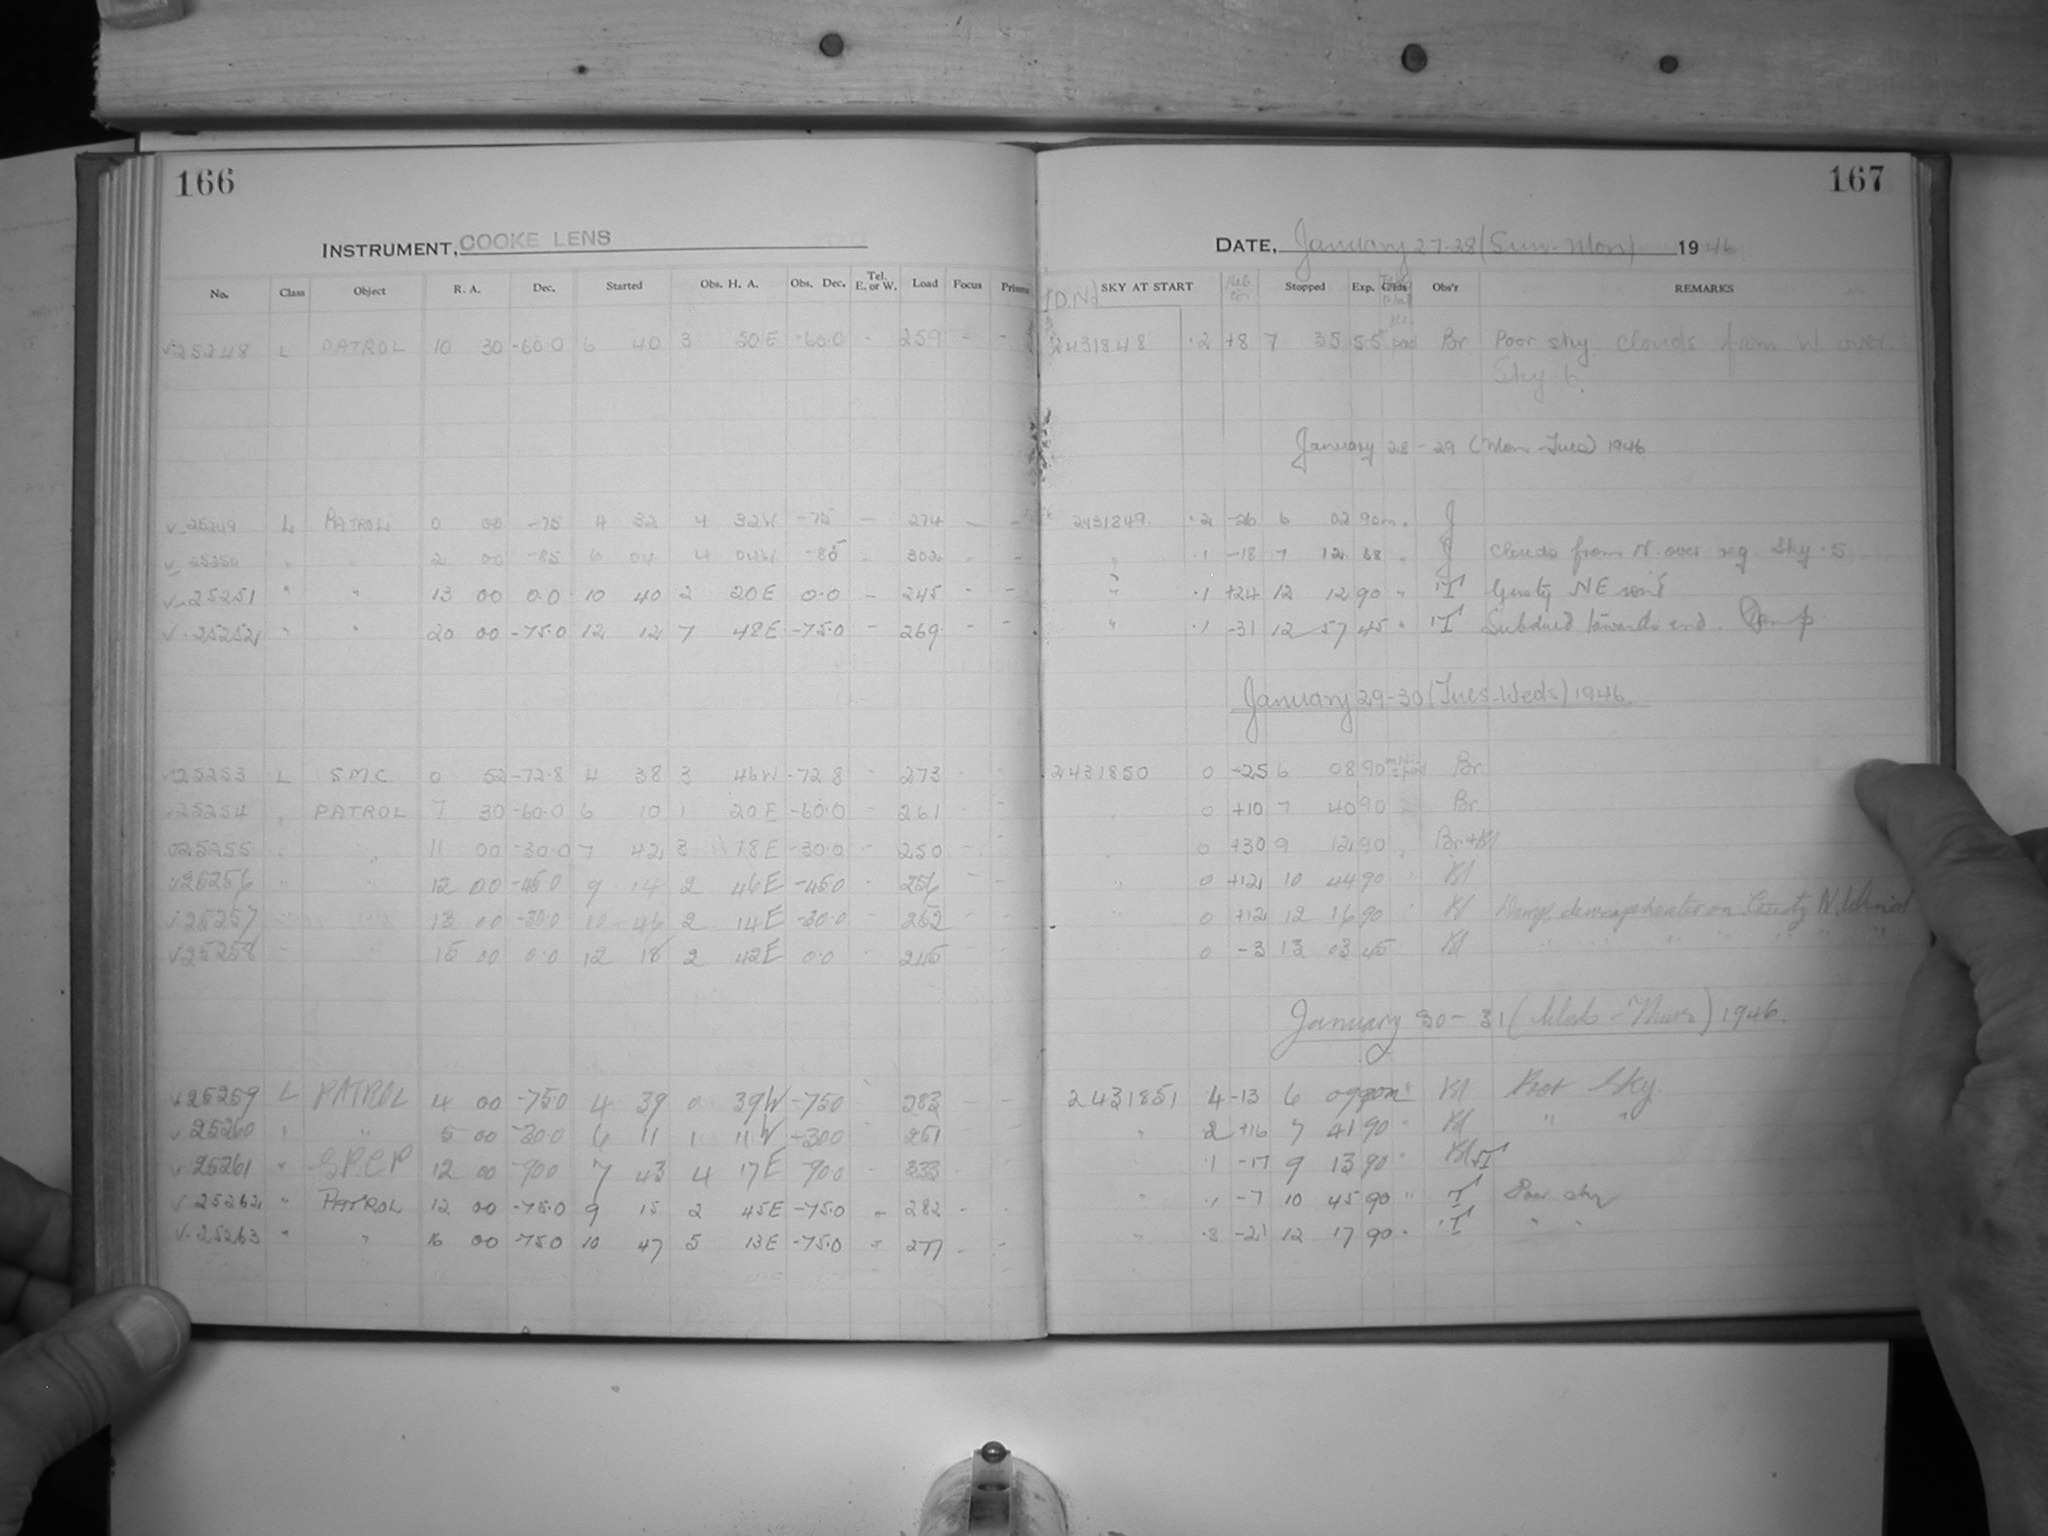 166
INSTRUMENT, COOKE LENS
No. Class Object R. A. Dec. Started Obs. H. A. Obs. Dec. Tel. E. or W. Load Focus Prisms
25248 L PATROL 10 30 -60.0 6 40 3 50E -60.0 - 259 - -
25249 L PATROL 0 00 -75 4 32 4 32W -75 - 274 - -
25250 " " 2 00 -85 6 04 4 04W -85 302
25251 " " 13 00 0.0 10 40 2 20E 0.0 - 245 - -
25252 " " 20 00 -75.0 12 12 7 48E -75.0 - 269 - -
25253 L S.M.C 0 52 -72.8 4 38 3 46W -72.8 - 273 - -
25254 " PATROL 7 30 -60.0 6 10 1 20E -60.0 - 261 - -
25255 " " 11 00 -30.0 7 42 3 18E -30.0 - 250 -
25256 " " 12 00 -45.0 9 14 2 46E -45.0 - 256 - -
25257 13 00 -30.0 10 46 2 14E -30.0 - 252 - -
25258 15 00 0.0 12 18 2 42E 0.0 - 245 - -
25259 L PATROL 4 00 -75.0 4 39 0 39W -75.0 283 - -
25260 " 5 00 -30.0 6 11 1 11W +30.0 251
25261 " S.P.C.P 12 00 -90.0 7 43 4 17E -90.0 333
25262 " PATROL 12 00 -75.0 9 15 2 45E -75.0 - 282 -
25263 " " 16 00 -75.0 10 47 5 13E -75.0 277 -
167
DATE, January 27-28 (Sun-Mon) 1946
J.D.No SKY AT START Stopped Exp. Obs'r REMARKS
2431848 .2 +8 7 35 55 Br Poor sky. Clouds from W over.
Sky 6.
January 28-29 (Mon-Tues) 1946
2431849 .2 -26 6 02 90m J
" .1 -18 7 12 68 " J Clouds from N. over reg. Sky .5
" .1 +24 12 12 90 " T Gusty NE wind
" .1 -31 12 57 45 " T Subdued towards end. Damp
January 29-30 (Tues-Weds) 1946.
2431850 0 -25 6 08 90 Br
" 0 +10 7 40 90 Br
" 0 +30 9 12 90 " Br+Kl
" 0 +12 10 44 90 " Kl
" 0 +12 12 16 90 " Kl Damp, dewcap heater on Gusty N. Wind
0 -3 13 03 45 Kl " " " " " " "
January 30-31 (Weds-Thurs) 1946.
2431851 .4 -13 6 09 90m " Kl Poor Sky.
" .2 +16 7 41 90 " Kl " "
.1 -17 9 13 90 " Kl+T
" .1 -7 10 45 90 " T Poor sky
" .3 -21 12 17 90 " T " "